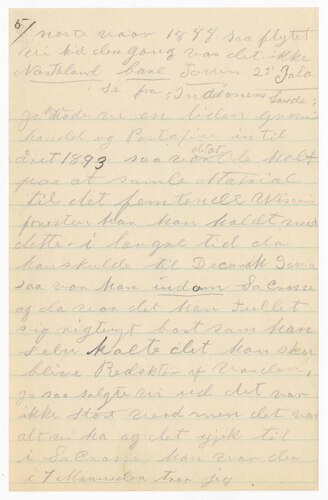 5/
næste vaar 1888 saa flytet
vi hid den gang var det ikke
Vasthland bare Towin 25 Jala
se fra Indianens Lands
Ja hade vi en liden groseri
handel og Postofise in til
aaret 1893 saa
paa at samle Matrial
til det femtende Wiscon
han han holdt med
dette i langre tid da
han skulde til Decorah Iowa
saa var han indom La Crosse
og da var det han fullet
sig rigteigt bast som han
selv kalte det han skulde
blive Redaktør af Varden,
ja saa salgte vi ud det var
ikke stort verd men det var
alt vi ha og det gjik til
i LaCrosse han var der
i 7 Maaneder tror jeg